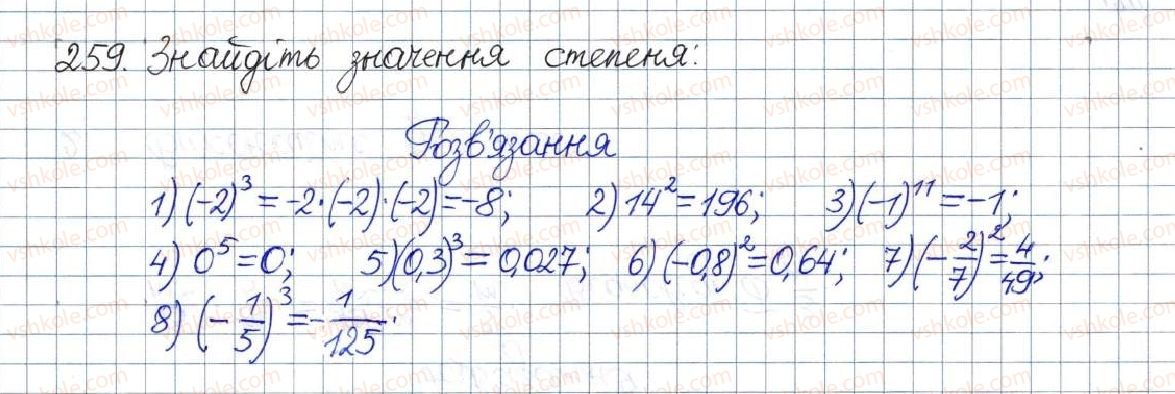 259. Знайдіть значення степеня:
Розв'язання
1) (-2)³ = -2·(-2)·(-2) = -8; 2) 14² = 196; 3) (-1)¹¹ = -1;
4) 0⁵ = 0; 5) (0,3)³ = 0,027; 6) (-0,8)² = 0,64; 7) (-2/7)² = 4/49;
8) (-1/5)³ = -1/125.